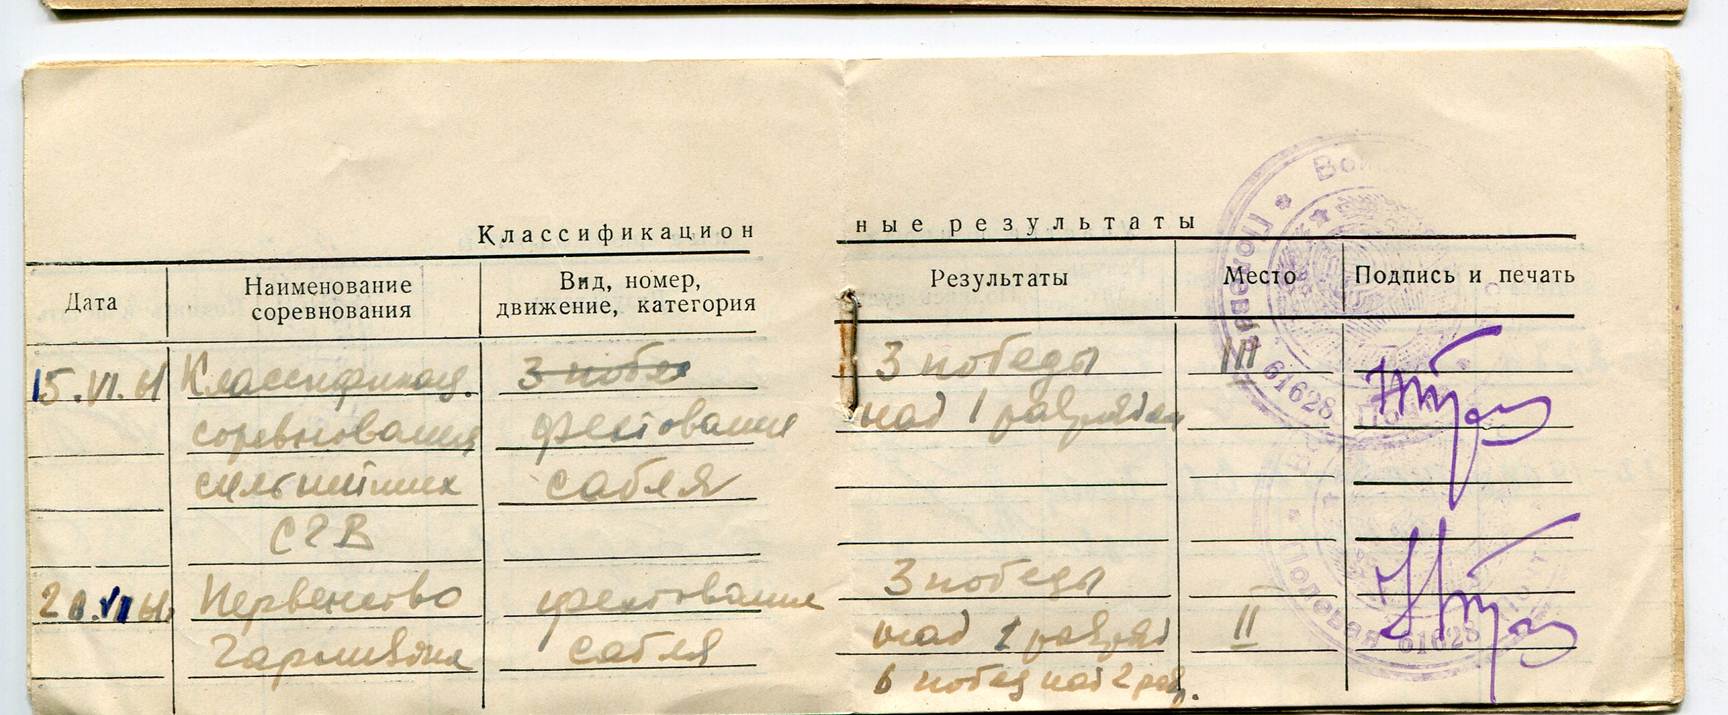 Классификацион ные результаты
Дата Наименование соревнования Вид, номер, движение, категория Результаты Место Подпись и печать
15.VI.61 Классификац. 3 побе 3 победы III
соревнования фехтование над 1 разрядом
сильнейших сабля
СГВ
20.VI 61 Первенство фехтование 3 победы II
Гарнизона сабля над 1 разряд
6 побед над 2 раз.
Полевая 61628
Полевая 61628